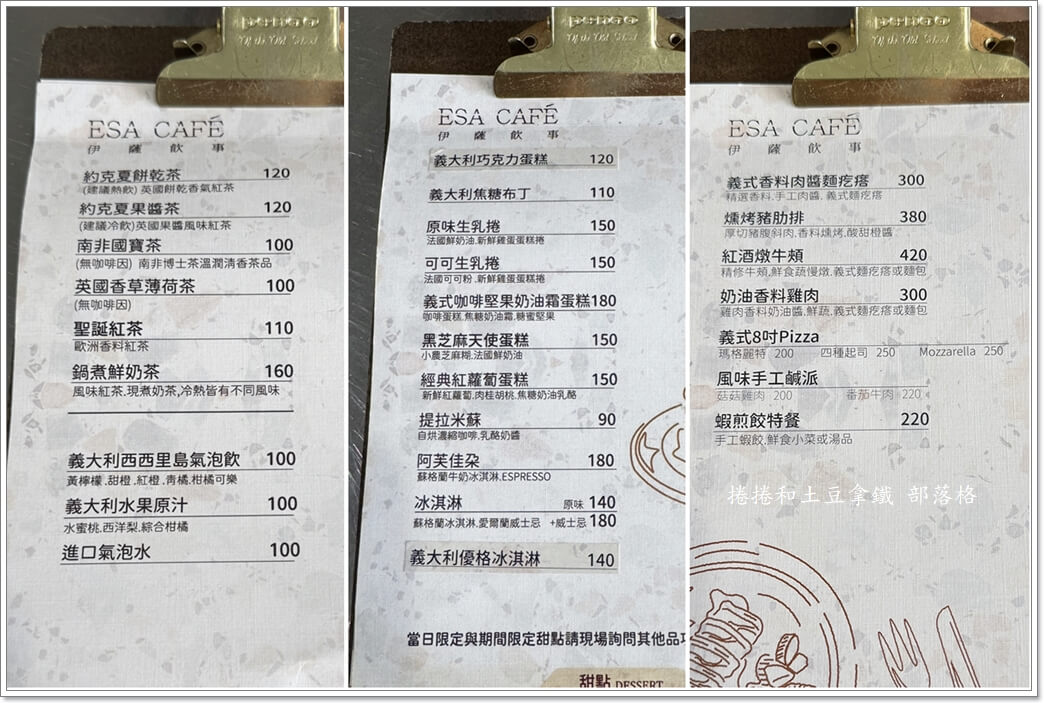 ESA CAFÉ
伊薩飲事
約克夏餅乾茶 120
(建議熱飲) 英國餅乾香氣紅茶
約克夏果醬茶 120
(建議冷飲)英國果醬風味紅茶
南非國寶茶 100
(無咖啡因) 南非博士茶溫潤清香茶品
英國香草薄荷茶 100
(無咖啡因)
聖誕紅茶 110
歐洲香料紅茶
鍋煮鮮奶茶 160
風味紅茶.現煮奶茶,冷熱皆有不同風味
義大利西西里島氣泡飲 100
黃檸檬.甜橙.紅橙.青橘.柑橘可樂
義大利水果原汁 100
水蜜桃.西洋梨.綜合柑橘
進口氣泡水 100
ESA CAFÉ
伊薩飲事
義大利巧克力蛋糕 120
義大利焦糖布丁 110
原味生乳捲 150
法國鮮奶油.新鮮雞蛋蛋糕捲
可可生乳捲 150
法國可可粉.新鮮雞蛋蛋糕捲
義式咖啡堅果奶油霜蛋糕180
咖啡蛋糕.焦糖奶油霜.糖蜜堅果
黑芝麻天使蛋糕 150
小農芝麻糊.法國鮮奶油
經典紅蘿蔔蛋糕 150
新鮮紅蘿蔔.肉桂胡桃.焦糖奶油乳酪
提拉米蘇 90
自烘濃縮咖啡.乳酪奶醬
阿芙佳朶 180
蘇格蘭牛奶冰淇淋.ESPRESSO
冰淇淋 原味 140
蘇格蘭冰淇淋.愛爾蘭威士忌 +威士忌180
義大利優格冰淇淋 140
當日限定與期間限定甜點請現場詢問其他品項
甜點 DESSERT
ESA CAFÉ
伊薩飲事
義式香料肉醬麵疙瘩 300
精選香料.手工肉醬.義式麵疙瘩
燻烤豬肋排 380
厚切豬腹斜肉,香料燻烤,酸甜橙醬
紅酒燉牛頰 420
精修牛頰,鮮食蔬慢燉.義式麵疙瘩或麵包
奶油香料雞肉 300
雞肉香料奶油醬,鮮蔬,義式麵疙瘩或麵包
義式8吋Pizza
瑪格麗特 200 四種起司 250 Mozzarella 250
風味手工鹹派
菇菇雞肉 200 番茄牛肉 220
蝦煎餃特餐 220
手工蝦餃,鮮食小菜或湯品
捲捲和土豆拿鐵 部落格